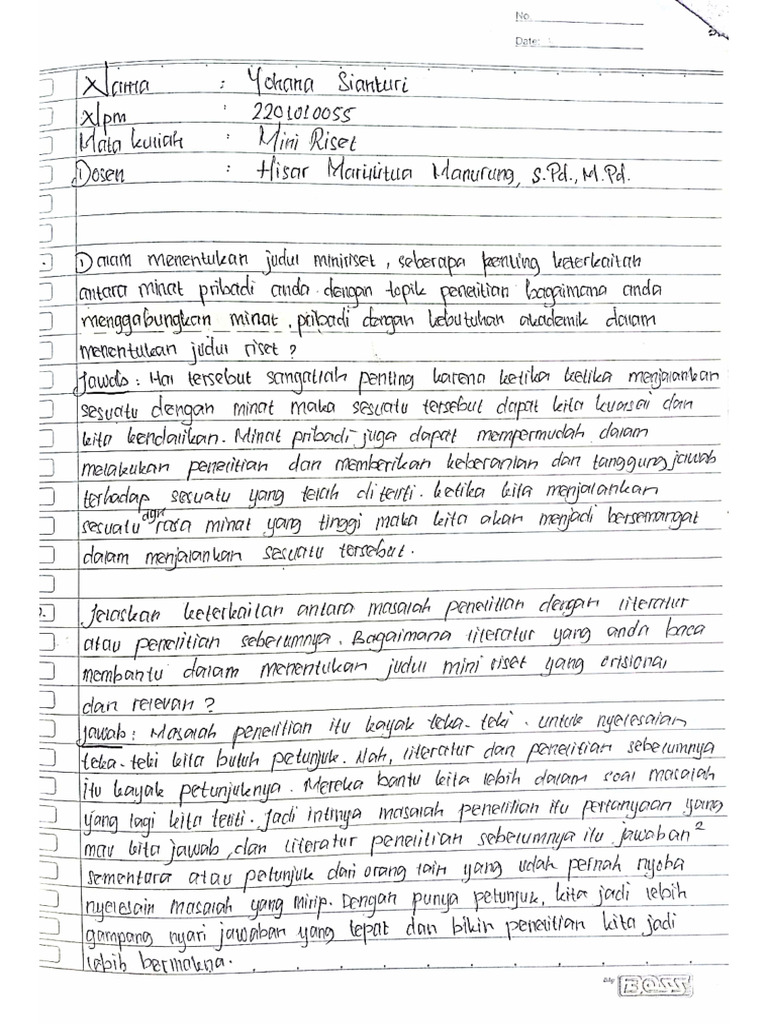 No.
Date:
Nama : Yohana Sianturi
Npm : 2201010055
Mata kuliah : Mini Riset
Dosen : Hisar Marulitua Manurung, S.Pd., M.Pd.
1 Dalam menentukan judul miniriset, seberapa penting keterkaitan
antara minat pribadi anda dengan topik penelitian bagaimana anda
menggabungkan minat, pribadi dengan kebutuhan akademik dalam
menentukan judul riset?
Jawab : Hal tersebut sangatlah penting karena ketika ketika menjalankan
sesuatu dengan minat maka sesuatu tersebut dapat kita kuasai dan
kita kendalikan. Minat pribadi juga dapat mempermudah dalam
melakukan penelitian dan memberikan keberanian dan tanggung jawab
terhadap sesuatu yang telah diteliti. ketika kita menjalankan
sesuatu dgn rasa minat yang tinggi maka kita akan menjadi bersemangat
dalam menjalankan sesuatu tersebut.
2. Jelaskan keterkaitan antara masalah penelitian dengan literatur
atau penelitian sebelumnya. Bagaimana literatur yang anda baca
membantu dalam menentukan judul mini riset yang orisional
dan relevan?
Jawab : Masalah penelitian itu kayak teka-teki. untuk nyelesaian
teka-teki kita butuh petunjuk. Nah, literatur dan penelitian sebelumnya
itu kayak petunjuknya. Mereka bantu kita lebih dalam soal masalah
yang lagi kita teliti. Jadi intinya masalah penelitian itu pertanyaan yang
mau kita jawab, dan literatur penelitian sebelumnya itu jawaban²
sementara atau petunjuk dari orang lain yang udah pernah nyoba
nyelesain masalah yang mirip. Dengan punya petunjuk, kita jadi lebih
gampang nyari jawaban yang tepat dan bikin penelitian kita jadi
lebih bermakna.
BOSS